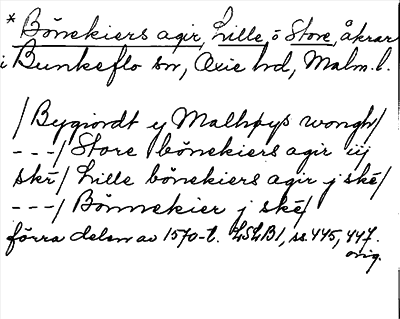 * Bönekiers agir, Lille o Store, åkrar
i Bunkeflo sn, Oxie hd, Malm. l.
/Bygiordt y Malhøys wongh/
---/ Store bönekiers agir iij
ske/ Lille bönekiers agir j ske/
---/ Bönnekier j ske/
förra delen av 1570-t. LSLB1, ss. 445, 447.
orig.